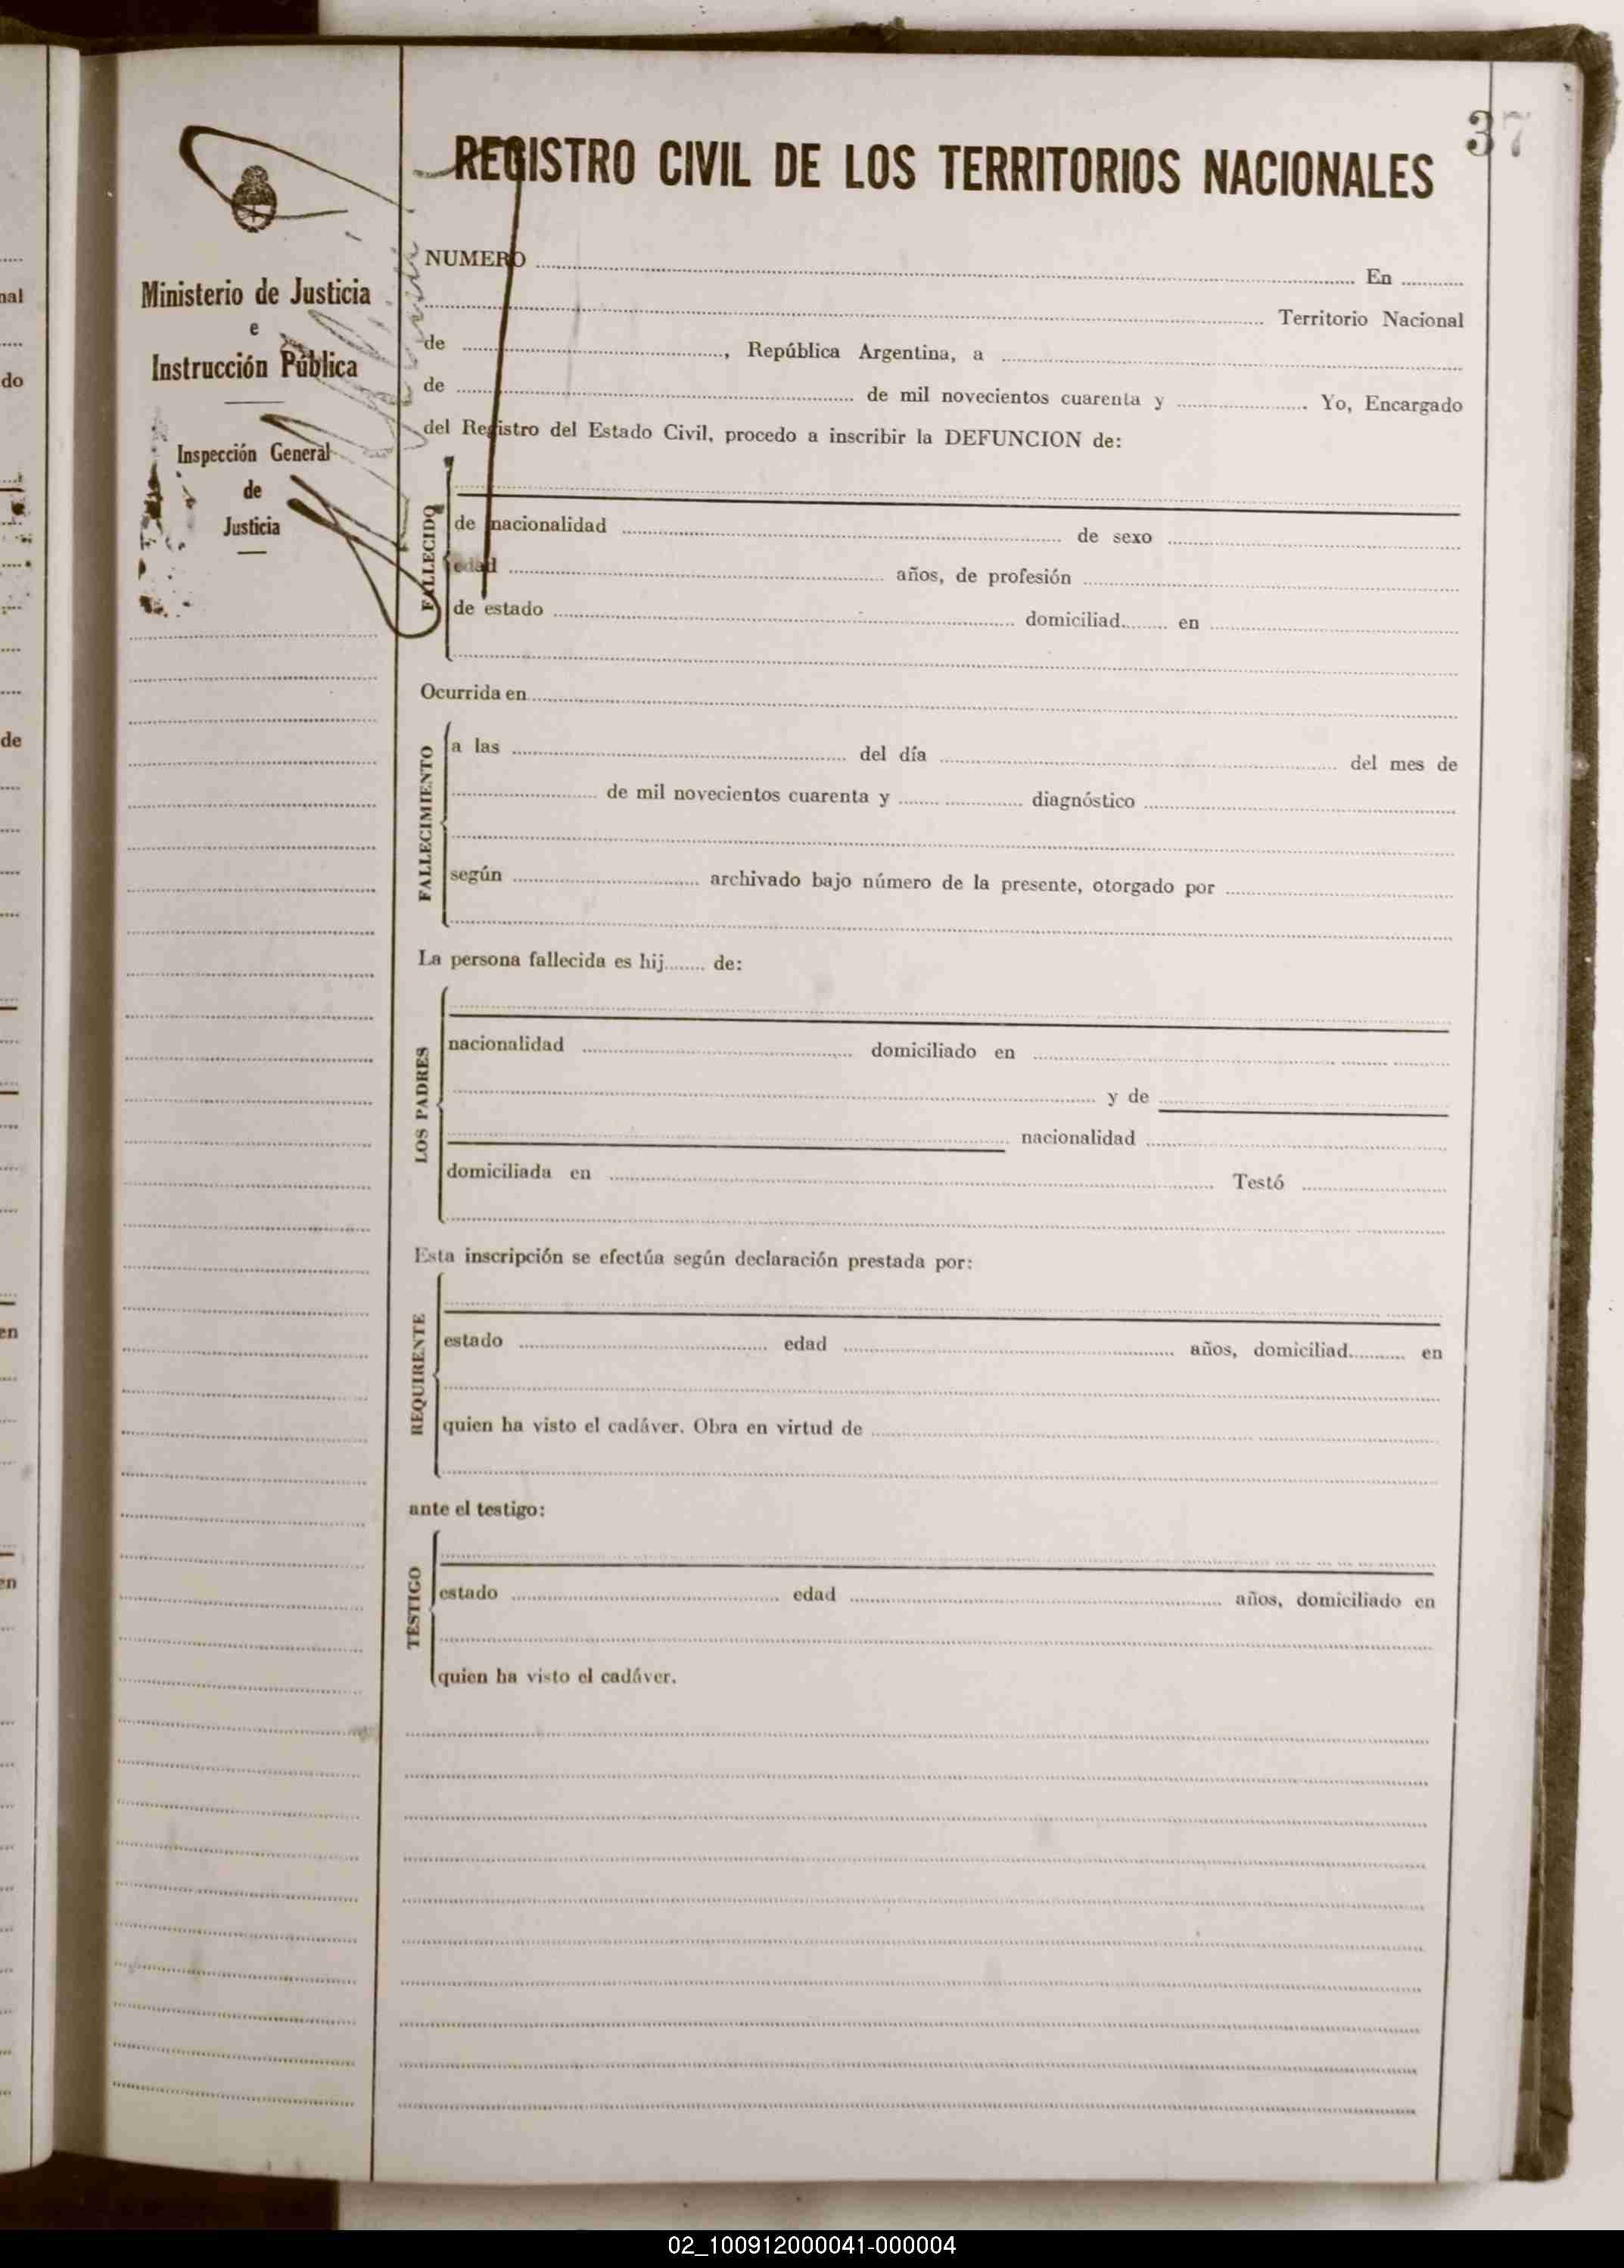 37
REGISTRO CIVIL DE LOS TERRITORIOS NACIONALES
Ministerio de Justicia
e
Instrucción Pública
Inspección General
de
Justicia
NUMERO En
Territorio Nacional
de , República Argentina, a
de de mil novecientos cuarenta y Yo, Encargado
del Registro del Estado Civil, procedo a inscribir la DEFUNCION de:
FALLECIDO
de nacionalidad de sexo
edad años, de profesión
de estado domiciliad........ en
Ocurrida en
FALLECIMIENTO
a las del día del mes de
de mil novecientos cuarenta y diagnóstico
según archivado bajo número de la presente, otorgado por
La persona fallecida es hij........ de:
LOS PADRES
nacionalidad domiciliado en
y de
nacionalidad
domiciliada en Testó
Esta inscripción se efectúa según declaración prestada por:
REQUIRENTE
estado edad años, domiciliad.......... en
quien ha visto el cadáver. Obra en virtud de
ante el testigo:
TESTIGO
estado edad años, domiciliado en
quien ha visto el cadáver.
nal
do
de
en
en
02_100912000041-000004